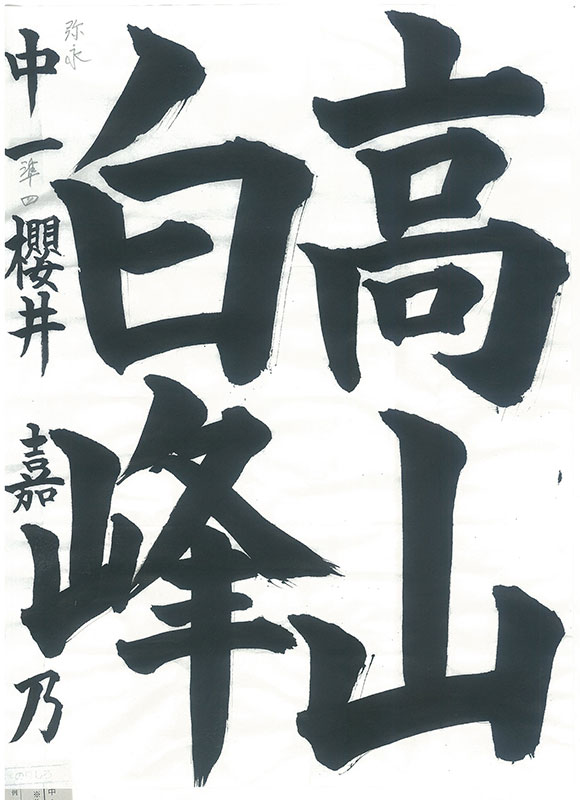 高山
白峰
中一 櫻井 嘉乃
弥永
準四